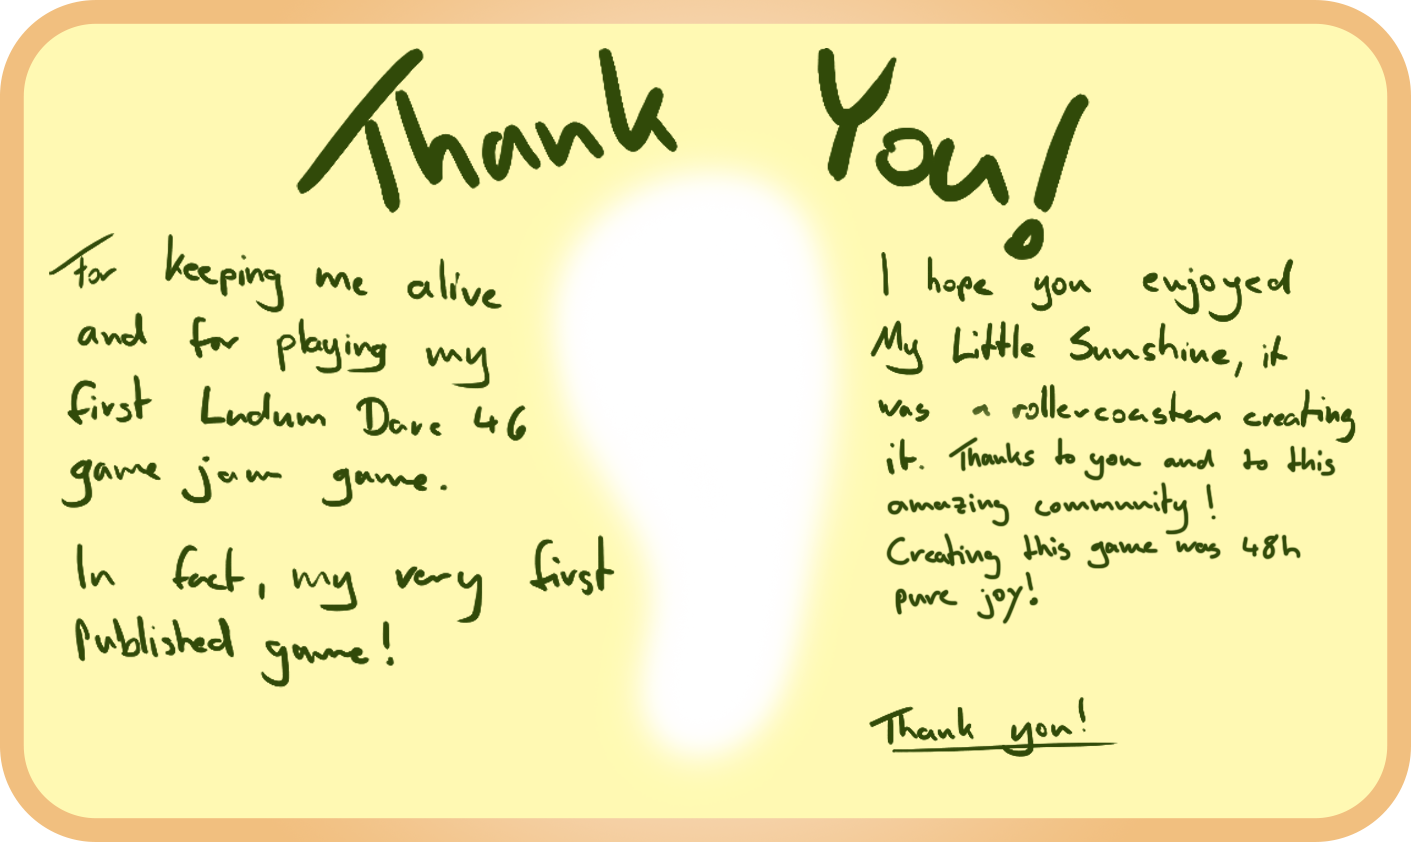 Thank You!
For keeping me alive
and for playing my
first Ludum Dare 46
game jam game.
In fact, my very first
Published game!
I hope you enjoyed
My Little Sunshine, it
was a rollercoaster creating
it. Thanks to you and to this
amazing community!
Creating this game was 48h
pure joy!
Thank you!